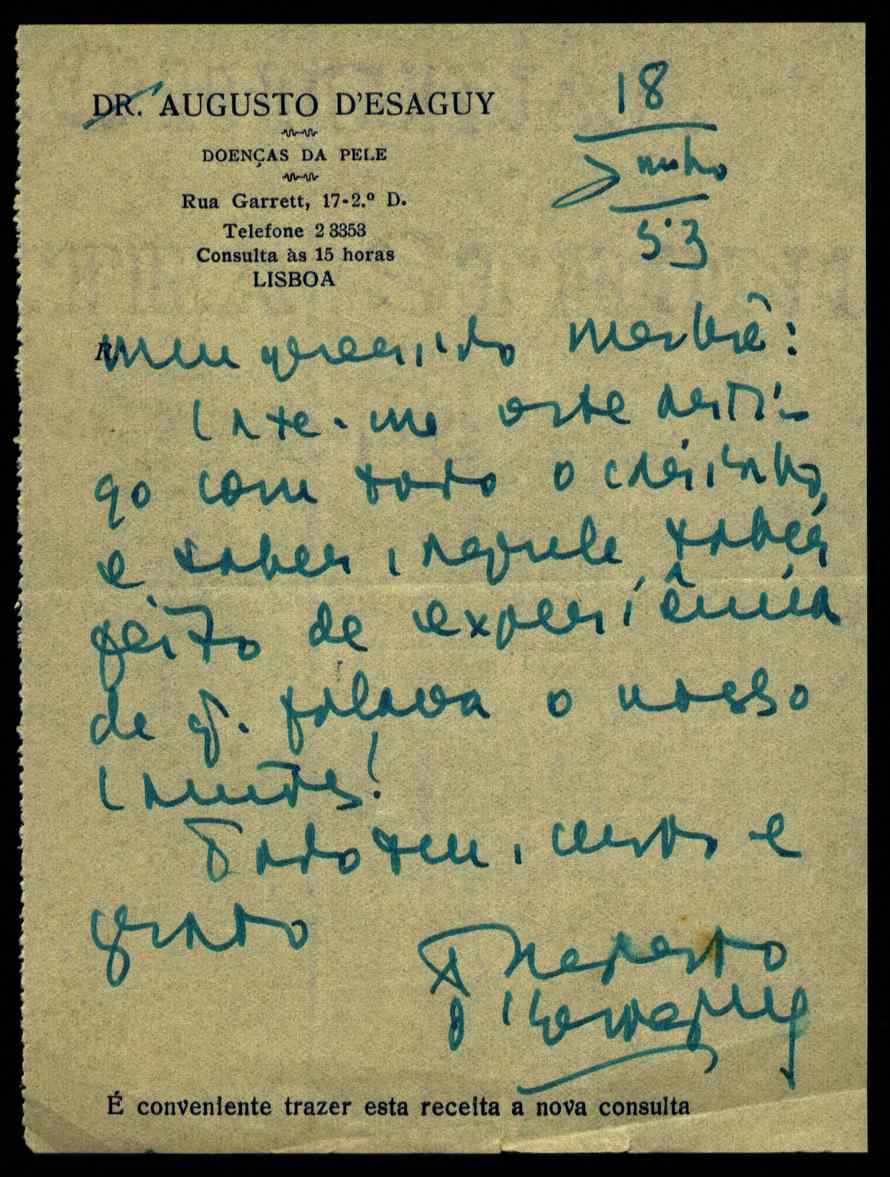 DR. AUGUSTO D'ESAGUY
DOENÇAS DA PELE
Rua Garrett, 17-2.º D.
Telefone 2 3353
Consulta às 15 horas
LISBOA
18
Junho
53
Meu querido Mestre:
este arti-
go com todo o carinho,
e saber, saber
feito de experiência
de q. falava o nosso
Camões!
Todo seu, certo e
grato
Augusto
d'Esaguy
É conveniente trazer esta receita a nova consulta